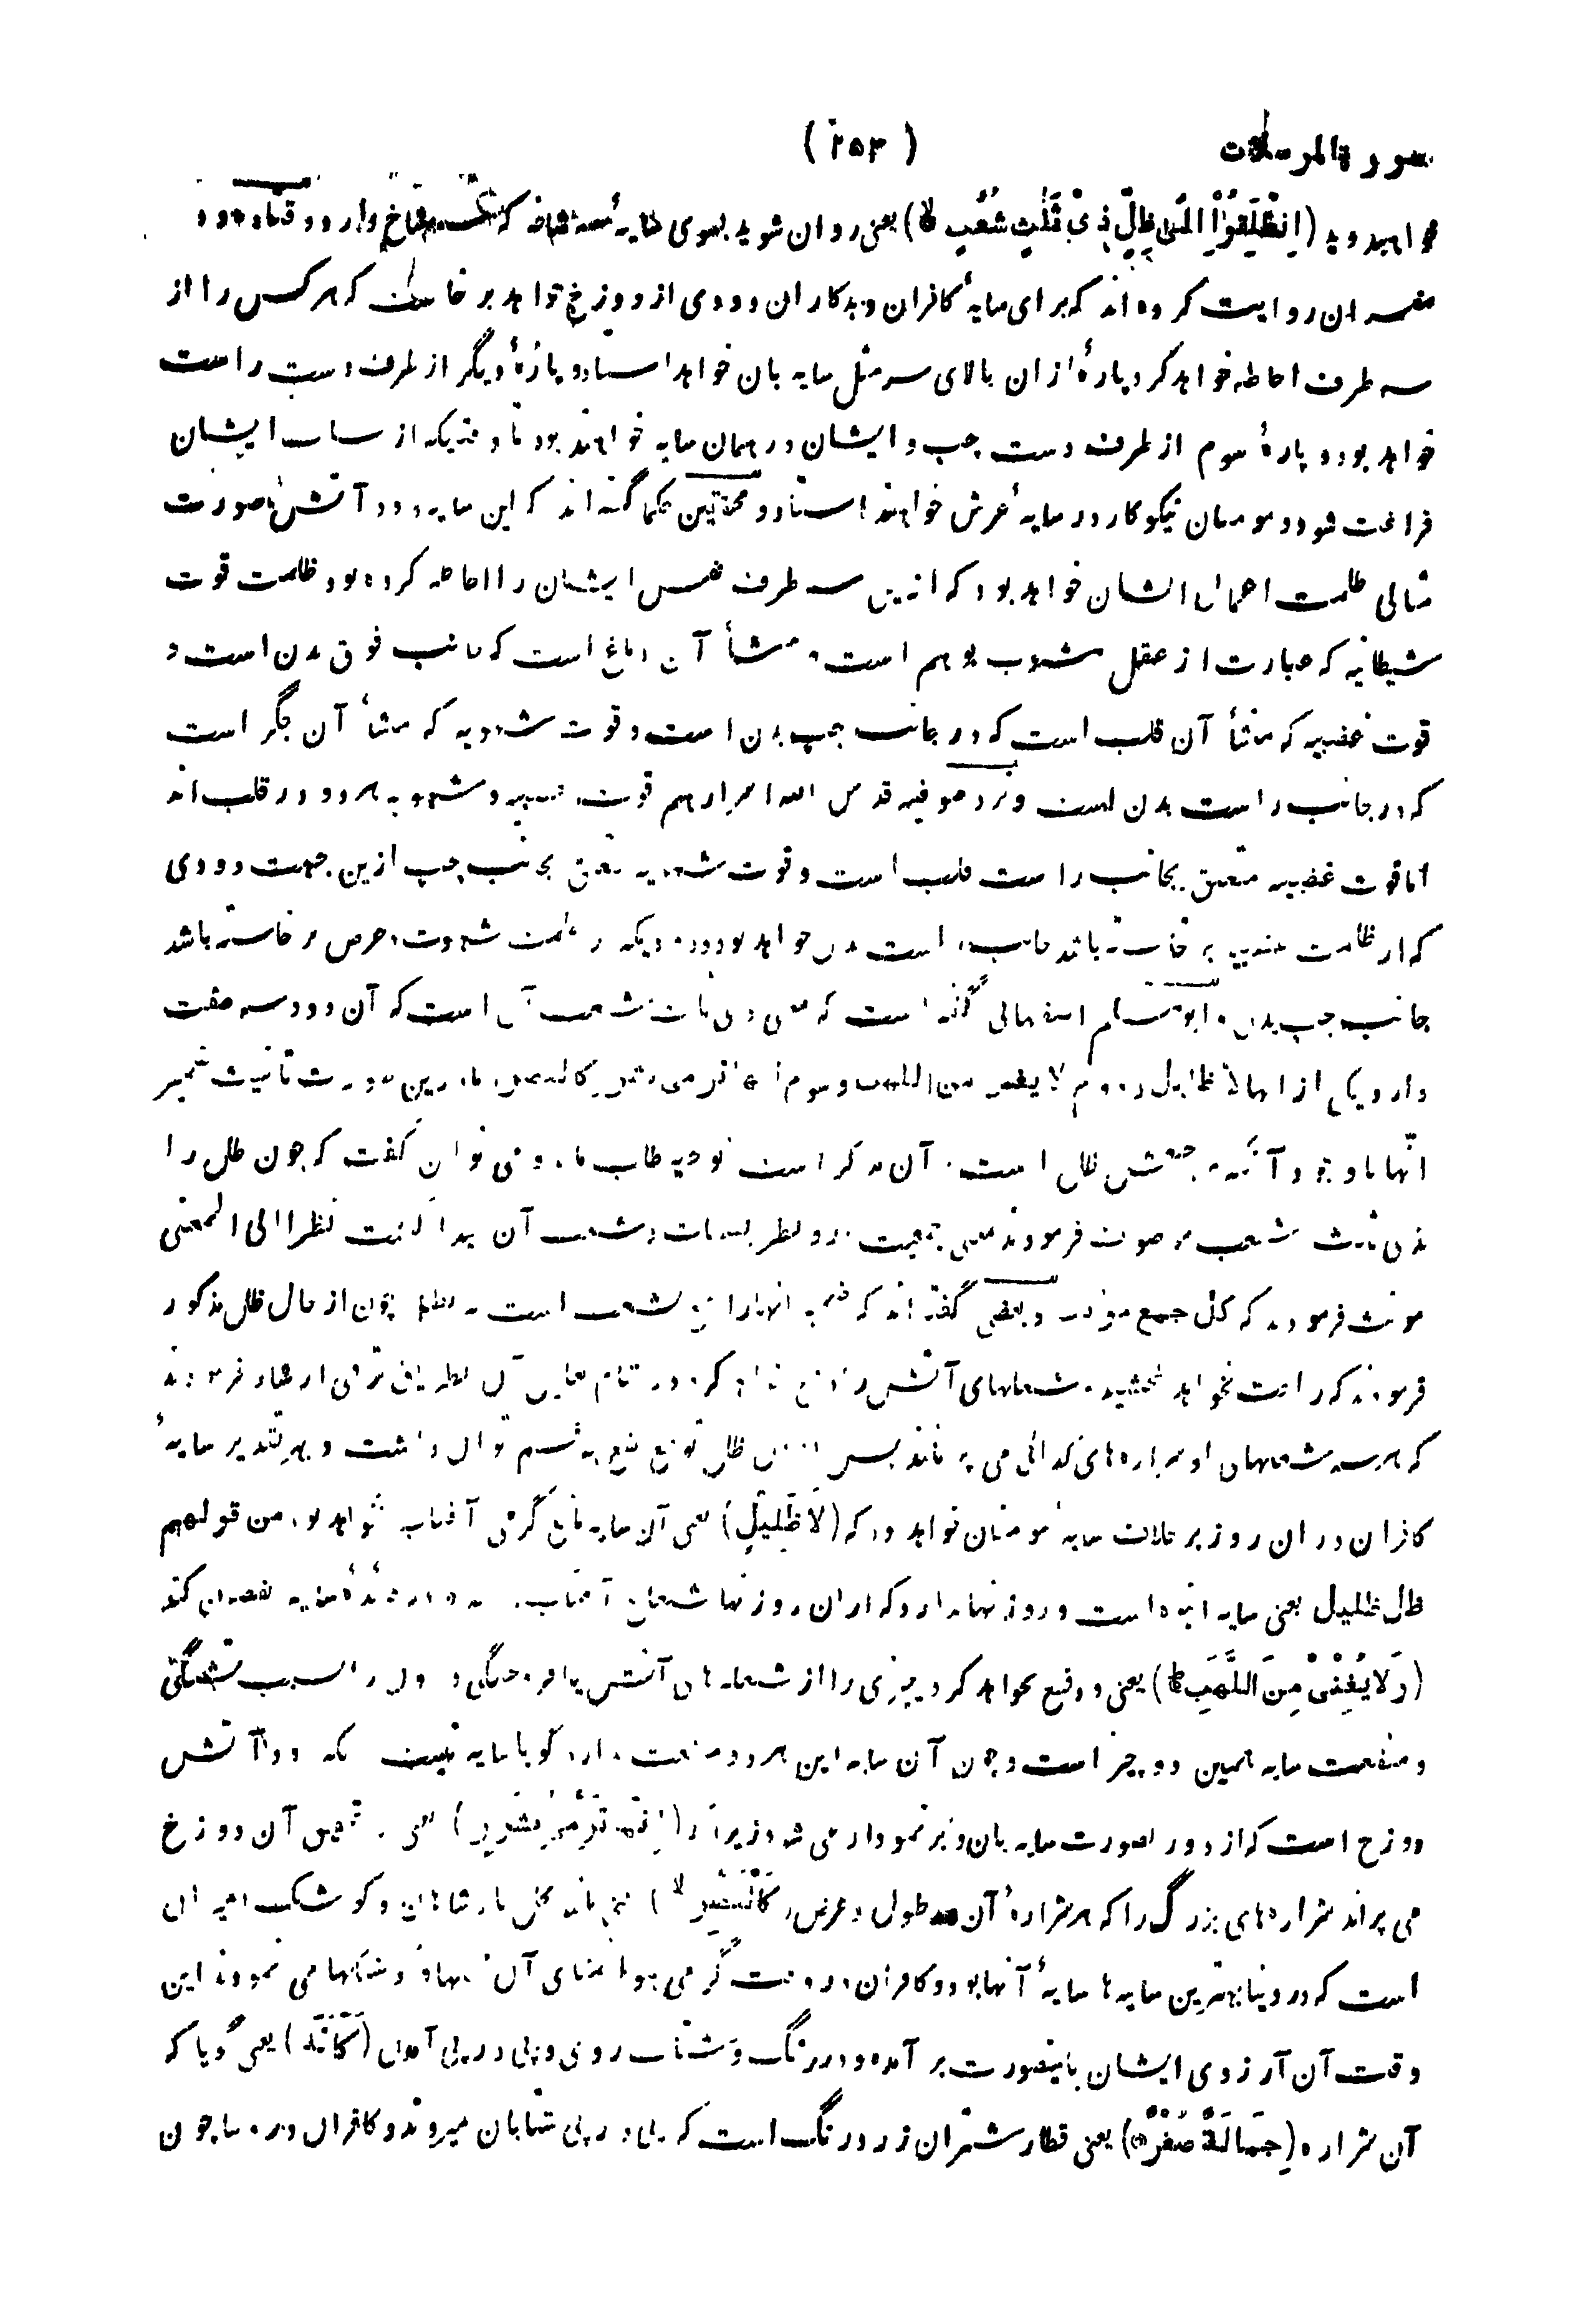 سورة المرسلات
( ۲۵۳ )
خواهید دید (اِنْطَلِقُوْا اِلٰی ظِلٍّ ذِیْ ثَلٰثِ شُعَبٍ ۙ) یعنی روان شوید بسوی سایهٔ سه شاخه که شاخ دارد و قتاده و
مفسران روایت کرده اند که برای سایهٔ کافران و بدکاران دودی از دوزخ خواهد برخاست که هر کس را از
سه طرف احاطه خواهد کرد پارهٔ ازان بالای سر مثل سایه بان خواهد استاد و پارهٔ دیگر از طرف دست راست
خواهد بود و پارهٔ سوم از طرف دست چپ و ایشان در همان سایه خواهند بود تا وقتیکه از حساب ایشان
فراغت شود و مومنان نیکوکار در سایهٔ عرش خواهند استاد و محققین حکما گفته اند که این سایه دود آتش صورت
مثالی ظلمت اعمال ایشان خواهد بود که ازین سه طرف نفس ایشان را احاطه کرده بود ظلمت قوت
شیطانیه که عبارت از عقل مشوب بوهم است و منشأ آن دماغ است که جانب فوق بدن است و
قوت غضبیه که منشأ آن قلب است که در جانب چپ بدن است و قوت شهویه که منشأ آن جگر است
که در جانب راست بدن است و نزد صوفیه قدس الله اسرارهم قوت غضبیه و شهویه هر دو در قلب اند
اما قوت غضبیه متعلق بجانب راست قلب است و قوت شهویه متعلق بجانب چپ ازین جهت دودی
که از ظلمت غضبیه برخاسته باشد جانب راست بدن خواهد بود و دودیکه از ظلمت شهوت و حرص برخاسته باشد
جانب چپ بدن و ابو مسلم اصفهانی گفته است که معنی ذی ثلث شعب آن است که آن دود سه صفت
دارد یکی از انها لا ظلیل و دوم لا یغنی من اللهب و سوم انها ترمی بشرر کالقصر اما درین صورت تانیث ضمیر
انها با وجود آنکه مرجعش ظل است و آن مذکر است توجیه طلب ماند و می توان گفت که چون ظل را
بذی ثلث شعب موصوف فرمودند معنی جمعیت درو بنظر شعب آن پیدا گشت نظرا الی المعنی
مونث فرمودند که کل جمع مونث و بعضی گفته اند که ضمیر انها راجع بشعب است چون از حال ظل مذکور
فرمودند که راحت نخواهد بخشید و شعلهای آتش را دفع نخواهد کرد در مقام بیان آن بطریق ترقی ارشاد فرمودند
که هر سه شعبهای او شراره های کذائی می پرانند پس ازین ظل توقع نفع بچه قسم توان داشت و بهر تقدیر سایهٔ
کافران در ان روز بر خلاف سایهٔ مومنان خواهد بود که (لَا ظَلِیْلٍ) یعنی آن سایه مانع گرمی آفتاب نخواهد بود من قولهم
ظل ظلیل یعنی سایه انبوه است و روزنها ندارد که ازان روزنها شعاع آفتاب فائدهٔ سایه نقصان کند
(وَلَا یُغْنِیْ مِنَ اللَّهَبِ ؕ) یعنی و دفع نخواهد کرد چیزی را از شعله های آتش یا افروختگی دل را بسبب تشنگی
و منفعت سایه همین دو چیز است و چون آن سایه این هر دو منفعت ندارد گویا سایه نیست بلکه دود آتش
دوزخ است که از دور بصورت سایه بان و ابر نمودار می شود زیرا که (اِنَّهَا تَرْمِیْ بِشَرَرٍ) یعنی بتحقیق آن دوزخ
می پراند شراره های بزرگ را که هر شرارهٔ آن در طول و عرض (كَالْقَصْرِ ۙ) یعنی مانند محل بادشاهان و کوشک امیران
است که در دنیا بهترین سایه ها سایهٔ آنها بود و کافران در وقت گرمی هوا تمنای آن محلها و کوشکها می نمودند این
وقت آن آرزوی ایشان باینصورت برآمده و در رنگ و شتاب روی و پی در پی آمدن (كَاَنَّهٗ) یعنی گویا که
آن شراره (جِمَالَةٌ صُفْرٌ ؕ) یعنی قطار شتران زرد رنگ است که پی در پی شتابان میروند و کافران در دنیا چون